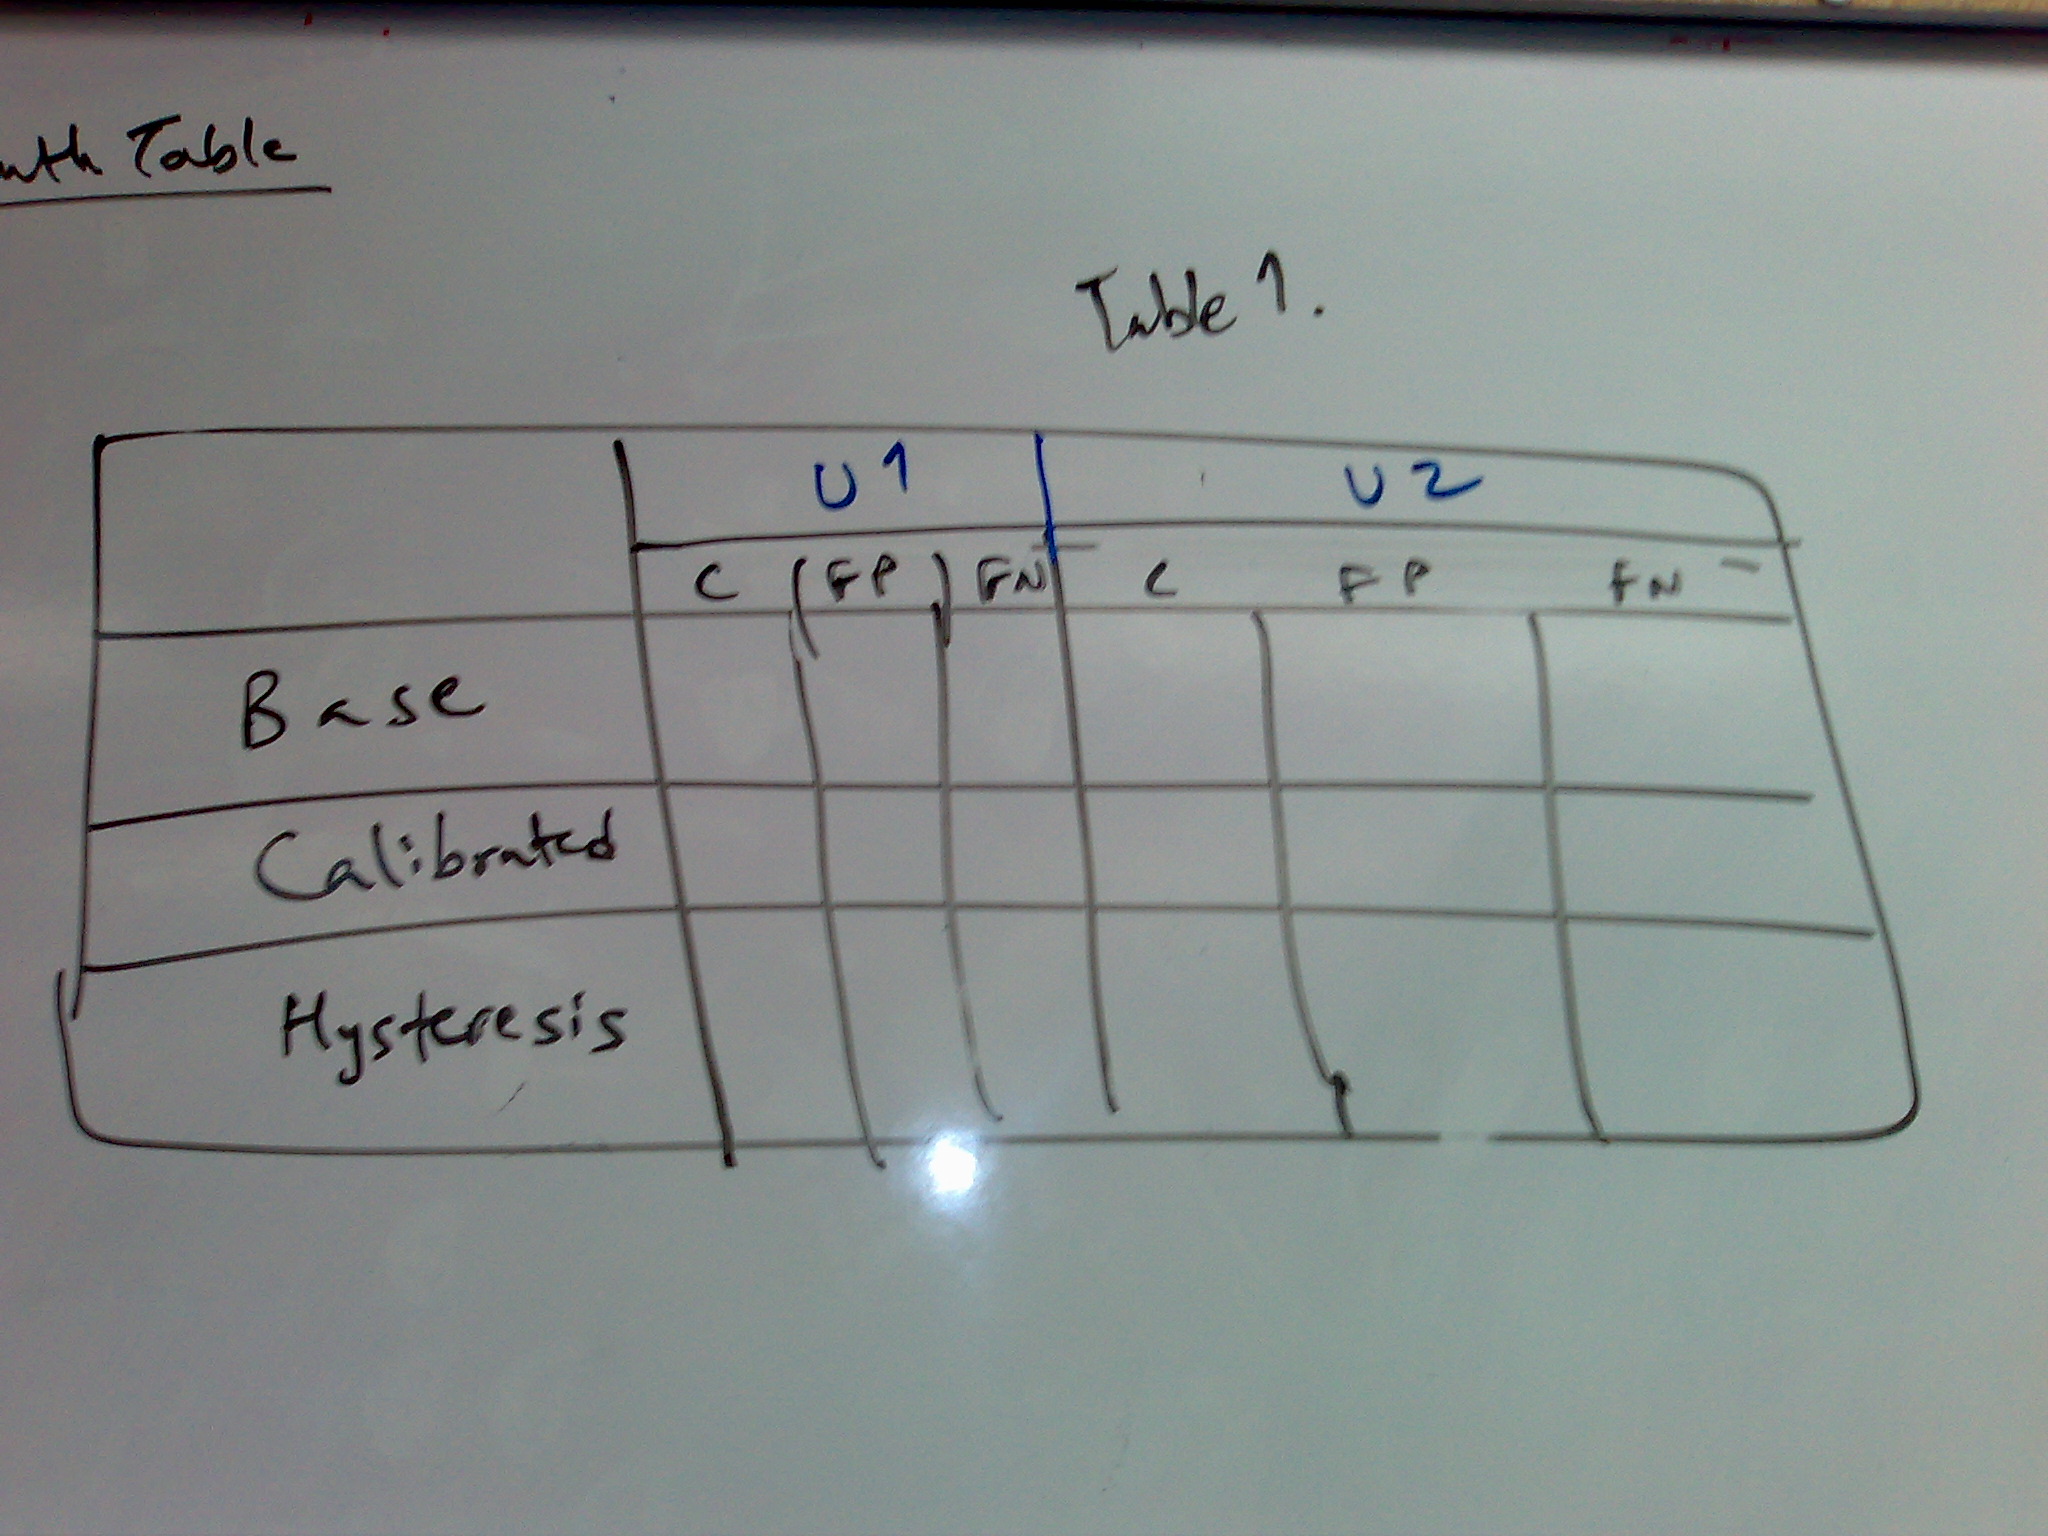 Table
Table 1.
U1 U2
C FP FN C FP FN
Base
Calibrated
Hysteresis